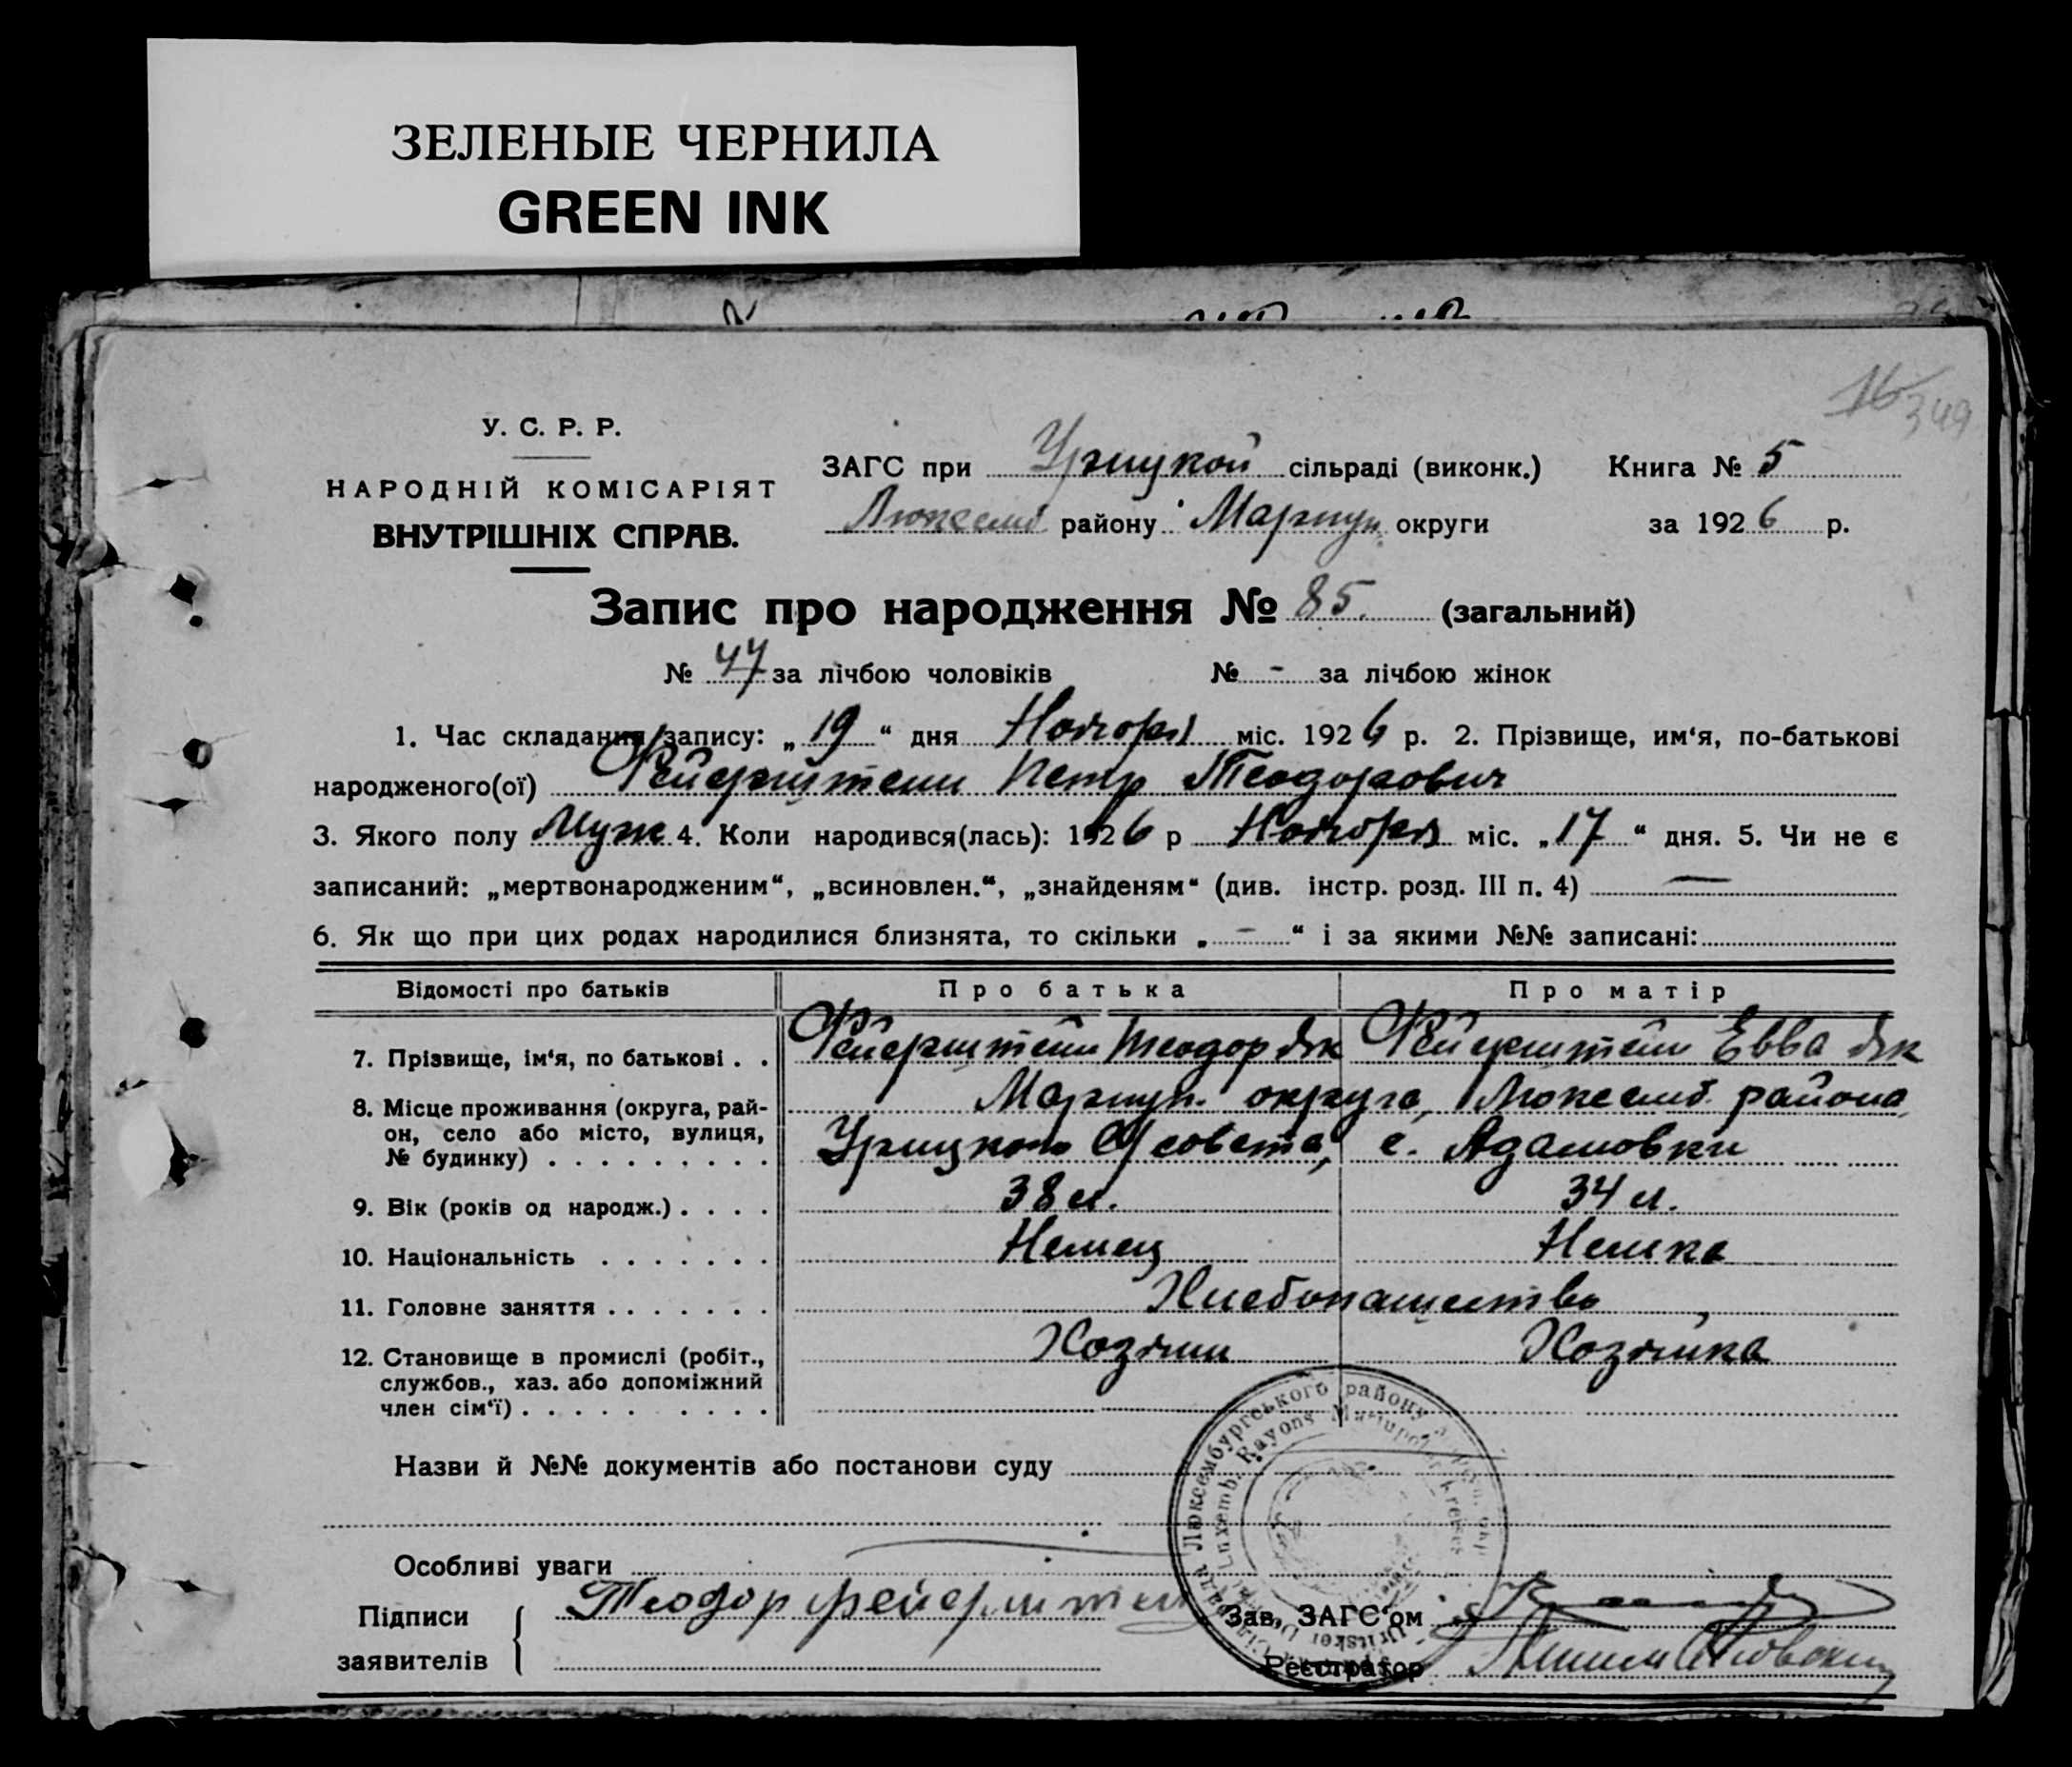 ЗЕЛЕНЫЕ ЧЕРНИЛА
GREEN INK
16 349
У. С. Р. Р.
НАРОДНІЙ КОМІСАРІЯТ
ВНУТРІШНІХ СПРАВ.
ЗАГС при Урицкой сільраді (виконк.) Книга № 5
Люксемб району Мариуп. округи за 1926 р.
Запис про народження № 85. (загальний)
№ 47 за лічбою чоловіків № - за лічбою жінок
1. Час складання запису: „19“ дня Ноября міс. 1926 р. 2. Прізвище, им‘я, по-батькові
народженого(ої) Фейерштейн Петр Теодорович
3. Якого полу Муж 4. Коли народився(лась): 1926 р Ноября міс. „17“ дня. 5. Чи не є
записаний: „мертвонародженим“, „всиновлен.“, „знайденям“ (див. інстр. розд. III п. 4) —
6. Як що при цих родах народилися близнята, то скільки „-“ і за якими №№ записані:
Відомості про батьків Про батька Про матір
7. Прізвище, ім‘я, по батькові . . Фейерштейн Теодор Як Фейерштейн Евва Як
8. Місце проживання (округа, рай- Мариуп. округа, Люксемб. района,
он, село або місто, вулиця, Урицкого С/совета, с. Адамовки
№ будинку) . . . . . . . . .
9. Вік (років од народж.) . . . . 38 л. 34 л.
10. Національність . . . . . . . Немец Немка
11. Головне заняття . . . . . . . Хлебопашество
12. Становище в промислі (робіт., Хозяин Хозяйка
службов., хаз. або допоміжний
член сім‘ї) . . . . . . . . . .
Назви й №№ документів або постанови суду
Особливі уваги
Підписи Теодор фейерштейн Зав. ЗАГС‘ом
заявителів Реєстратор
Люксембургського району
Luxemb. Rayons Mariupoler Kreises
Uritsker